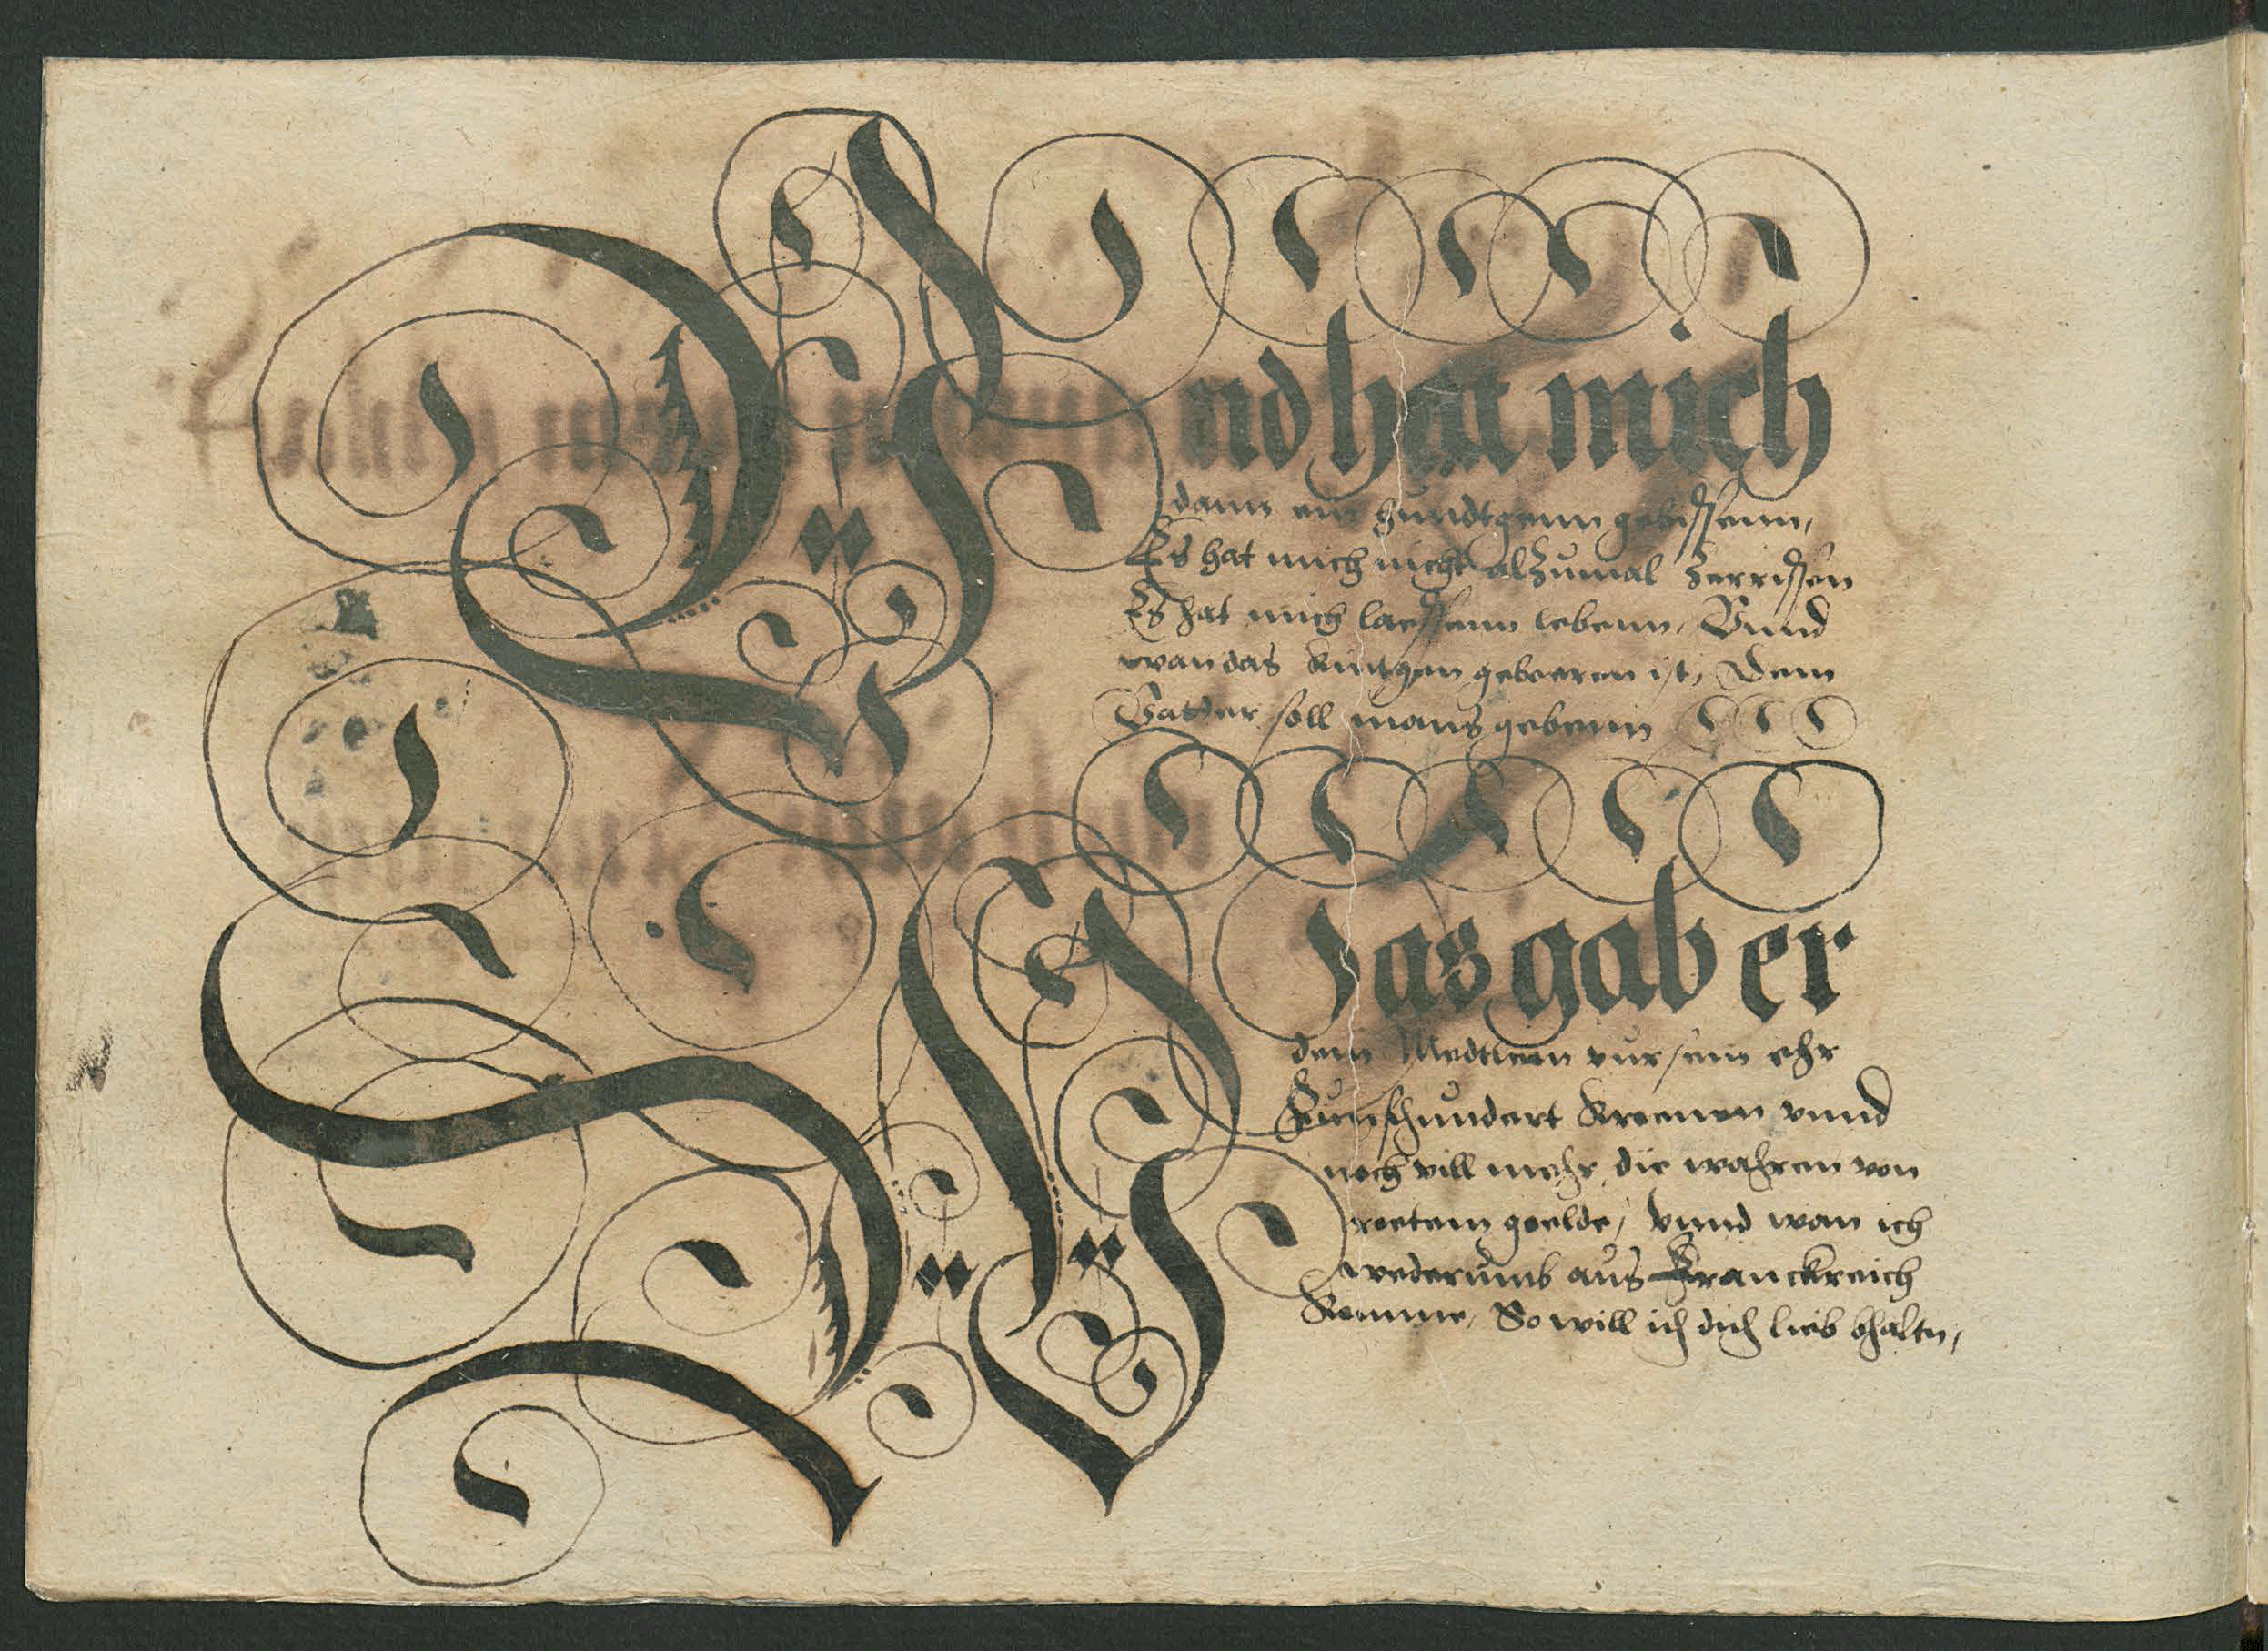 Vnd hat mich
dann ein hundtgenn gebissenn,
Es hat mich nicht alzumal zerrissen
Es hat mich laessenn lebenn, Vnnd
wan das kintgen geboeren ist, Dem
Vatter soll mans gebenn
Was gab er
dem Medtlein vur sein ehr
Funfhundert Kroenen vnnd
noch vill mehr, die wahren von
roetem goelde, vnnd wan ich
wederumb aus Franckreich
komme, So will ich dich lieb bhaltn,